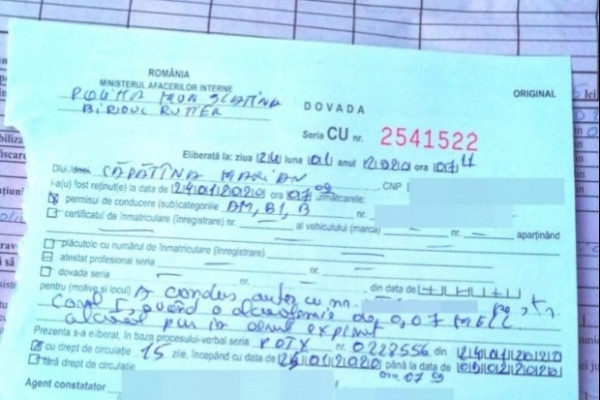 ROMÂNIA
MINISTERUL AFACERILOR INTERNE
POLIȚIA MUN SLATINA
BIROUL RUTIER
DOVADA
ORIGINAL
Seria CU nr. 2541522
Eliberată la: ziua 24 luna 01 anul 2020 ora 07
Dlui/dnei CĂPĂȚÎNA MARIAN CNP
i-a(u) fost reținut(e) la data de 24012020 ora 0709 următoarele:
permisul de conducere (sub)categoriile AM, B1, B nr.
certificatul de înmatriculare (înregistrare) nr. — al vehiculului (marca) — nr. — aparținând
plăcuțele cu numărul de înmatriculare (înregistrare)
atestat profesional seria — nr. —
dovada seria — nr. — din data de
pentru (motive și locul) A condus auto cu nr.
având o alcoolemie de 0,07 mg/l
alcool pur în aerul expirat
Prezenta s-a eliberat, în baza procesului-verbal seria POTX nr. 0228556 din 24012020
cu drept de circulație 15 zile, începând cu data de 25012020 până la data de
fără drept de circulație ora 0709
Agent constatator